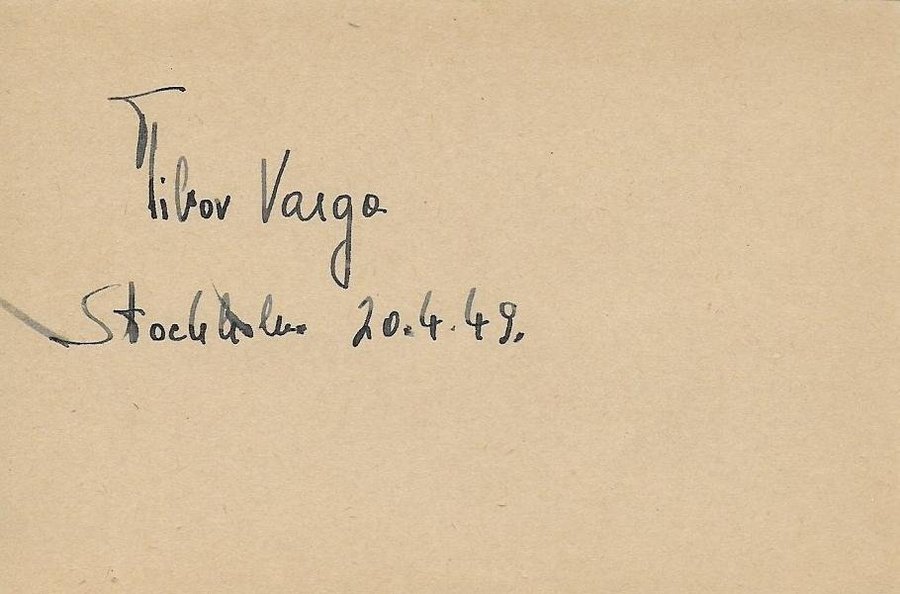 Tibor Varga
Stockholm 20.4.49.